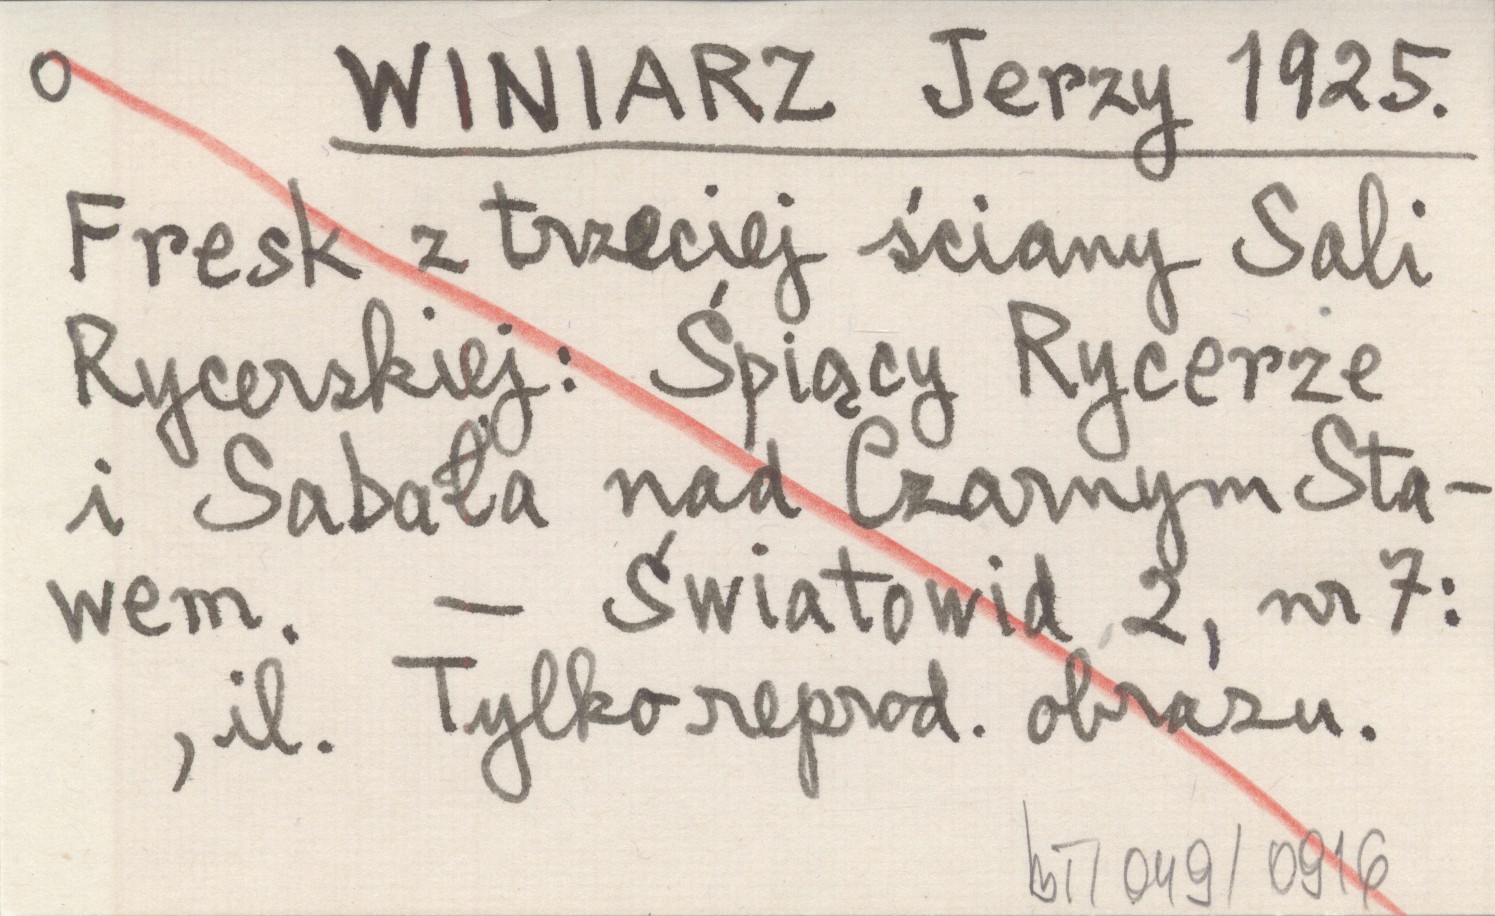 o WINIARZ Jerzy 1925.
Fresk z trzeciej ściany Sali
Rycerskiej: Śpiący Rycerze
i Sabała nad Czarnym Sta-
wem. – Światowid 2, nr 7:
, il. Tylko reprod. obrazu.
bT/049/0916